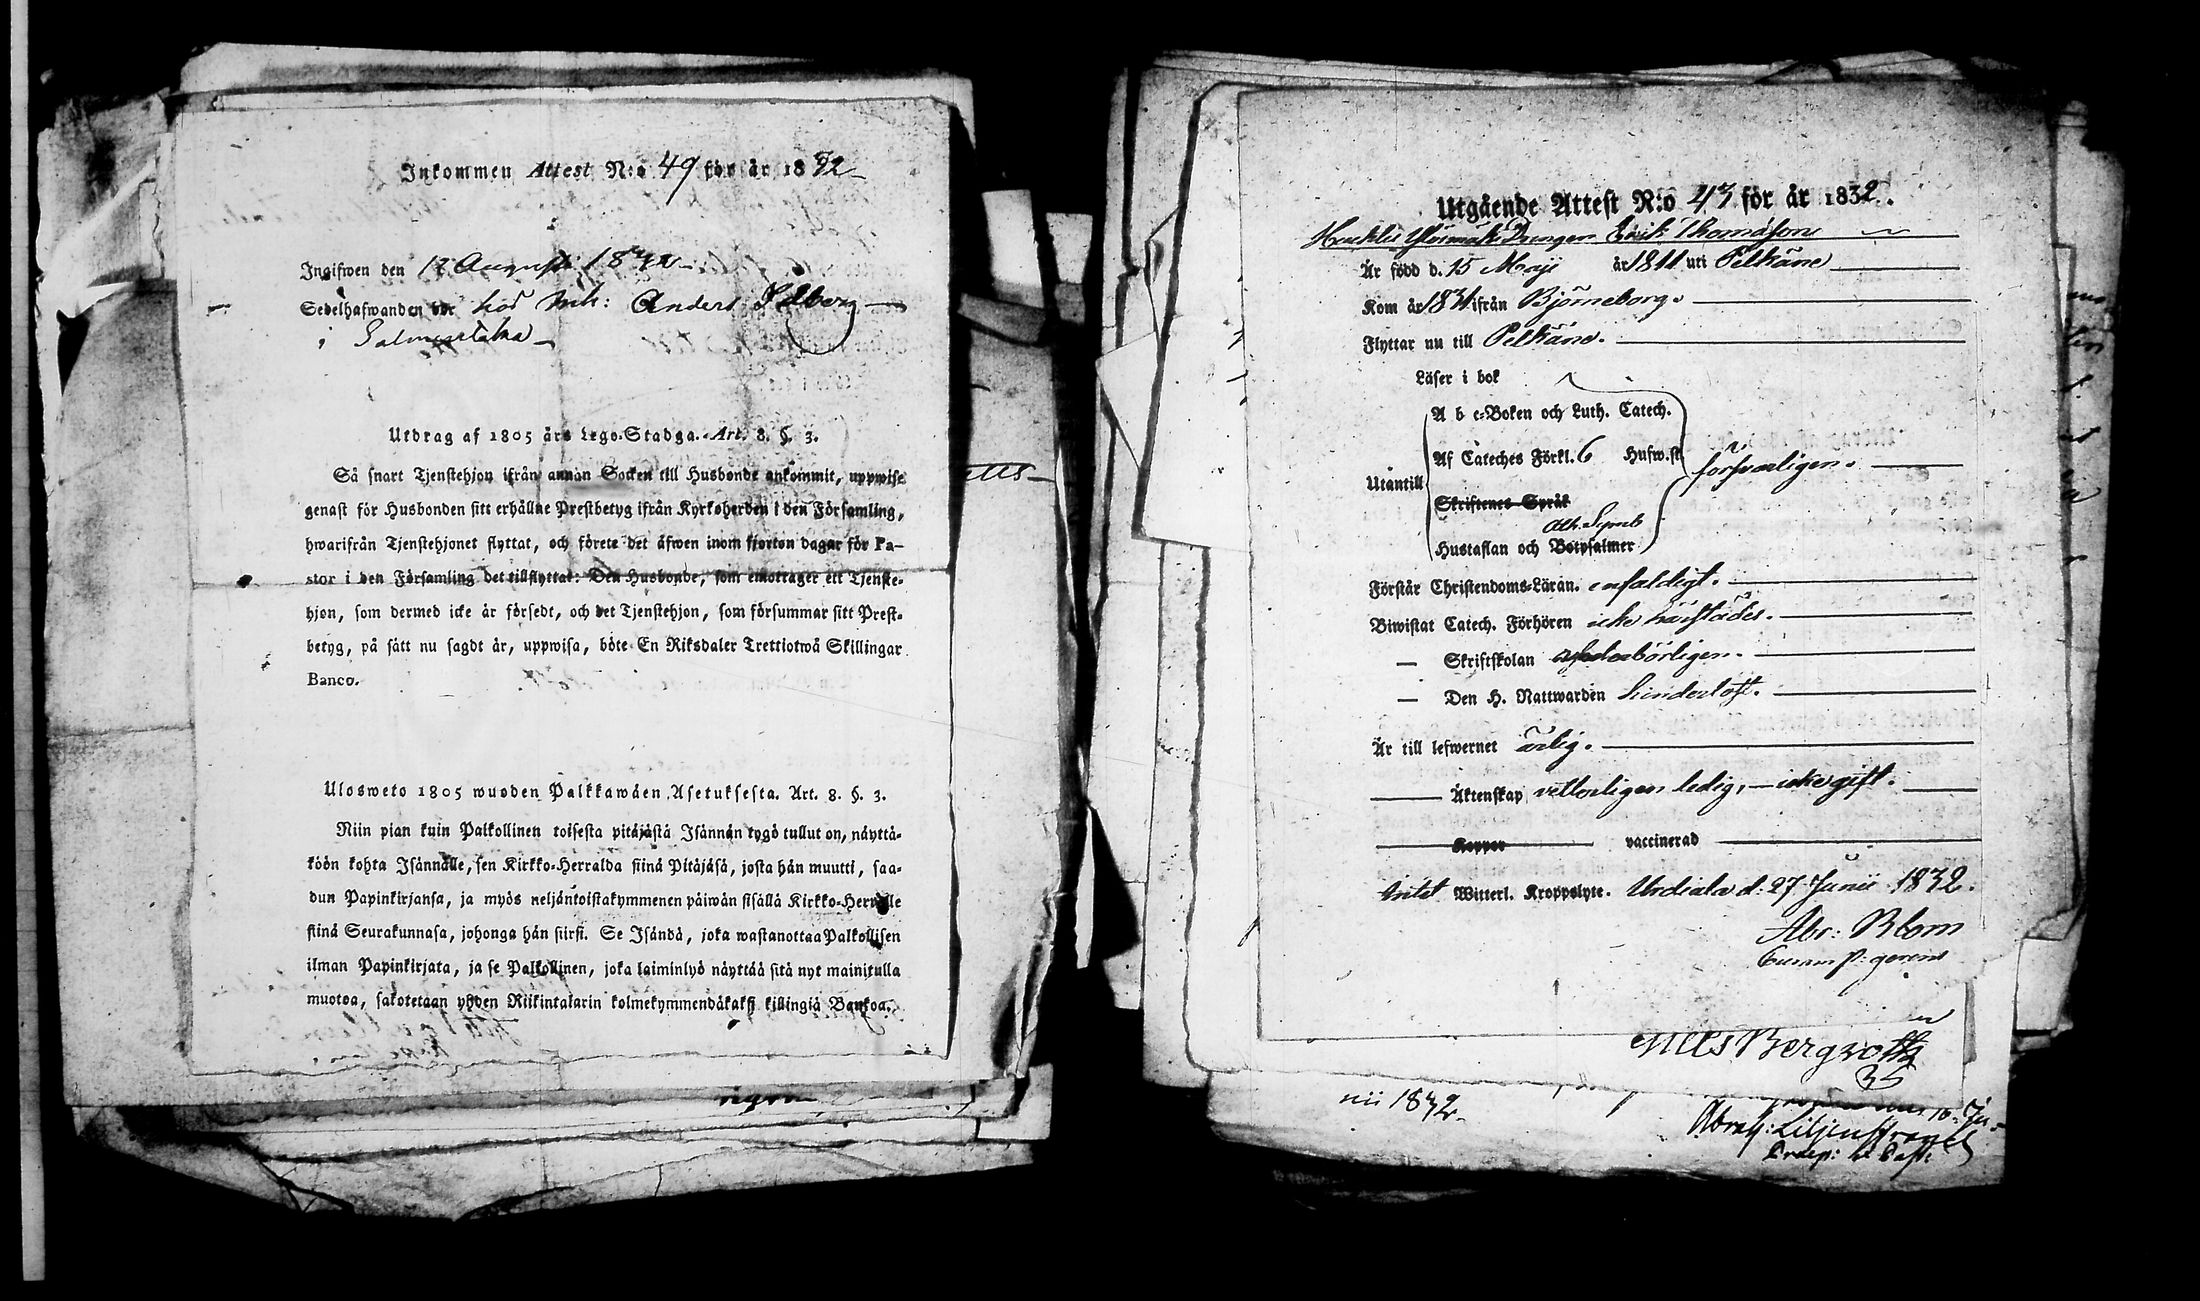 Inkommen Attest N:o 49 för år 1832
Ingifwen den 17 Augusti 1832
Sedelhafwanden bor hos Inh: Anders Idberg
i Salmentaka
Utdrag af 1805 års Lego-Stadga. Art. 8. §. 3.
Så snart Tjenstehjon ifrån annan Socken till Husbonde ankommit, uppwise
genast för Husbonden sitt erhållne Prestbetyg ifrån Kyrkoherden i den Församling,
hwarifrån Tjenstehjonet flyttat, och förete det äfwen inom fjorton dagar för Pa-
stor i den Församling det tillflyttat: Den Husbonde, som emottager ett Tjenste-
hjon, som dermed icke är försedt, och det Tjenstehjon, som försummar sitt Prest-
betyg, på sätt nu sagdt är, uppwisa, böte En Riksdaler Trettiotwå Skillingar
Banco.
Ulosweto 1805 wuoden Palkkawäen Asetuksesta. Art. 8. §. 3.
Niin pian kuin Palkollinen toisesta pitäjästä Isännän tygö tullut on, näyttä-
köön kohta Isännälle, sen Kirkko-Herralda siinä Pitäjäsä, josta hän muutti, saa-
dun Papinkirjansa, ja myös neljäntoistakymmenen päiwän sisällä Kirkko-Herralle
siinä Seurakunnasa, johonga hän siirsi. Se Isändä, joka wastanottaa Palkollisen
ilman Papinkirjata, ja se Palkollinen, joka laiminlyö näyttää sitä nyt mainitulla
muotoa, sakotetaan yhden Riikintalarin kolmekymmendäkaksi killingiä Bankoa.
Utgående Attest N:o 43 för år 1832.
Drengen Erik Thomasson
Är född d. 15 Maji år 1811 uti Pelkäne
Kom år 1831 ifrån Björneborg.
Flyttar nu till Pelkäne.
Läser i bok
A b c-Boken och Luth. Catech.
Af Cateches Förkl. 6 Hufw.st.
Utantill
försvarligen.
Skriftenes Språk
Ath. Symb
Hustaflan och Botpsalmer
Förstår Christendoms-Läran. enfaldigt.
Biwistat Catech. Förhören icke härstädes.
— Skriftskolan
— Den H. Nattwarden hinderlöst.
Är till lefwernet ärlig.
Äktenskap vetterligen ledig, – icke gift.
Koppor vaccinerad
Intet Witterl. Kroppslyte. Urdiala d: 27 Junii 1832.
Abr: Blom
Nils Bergroth
35
nii 1832
16 Ju-
Abrah: Liljenstrand
Praep: &amp; Past: